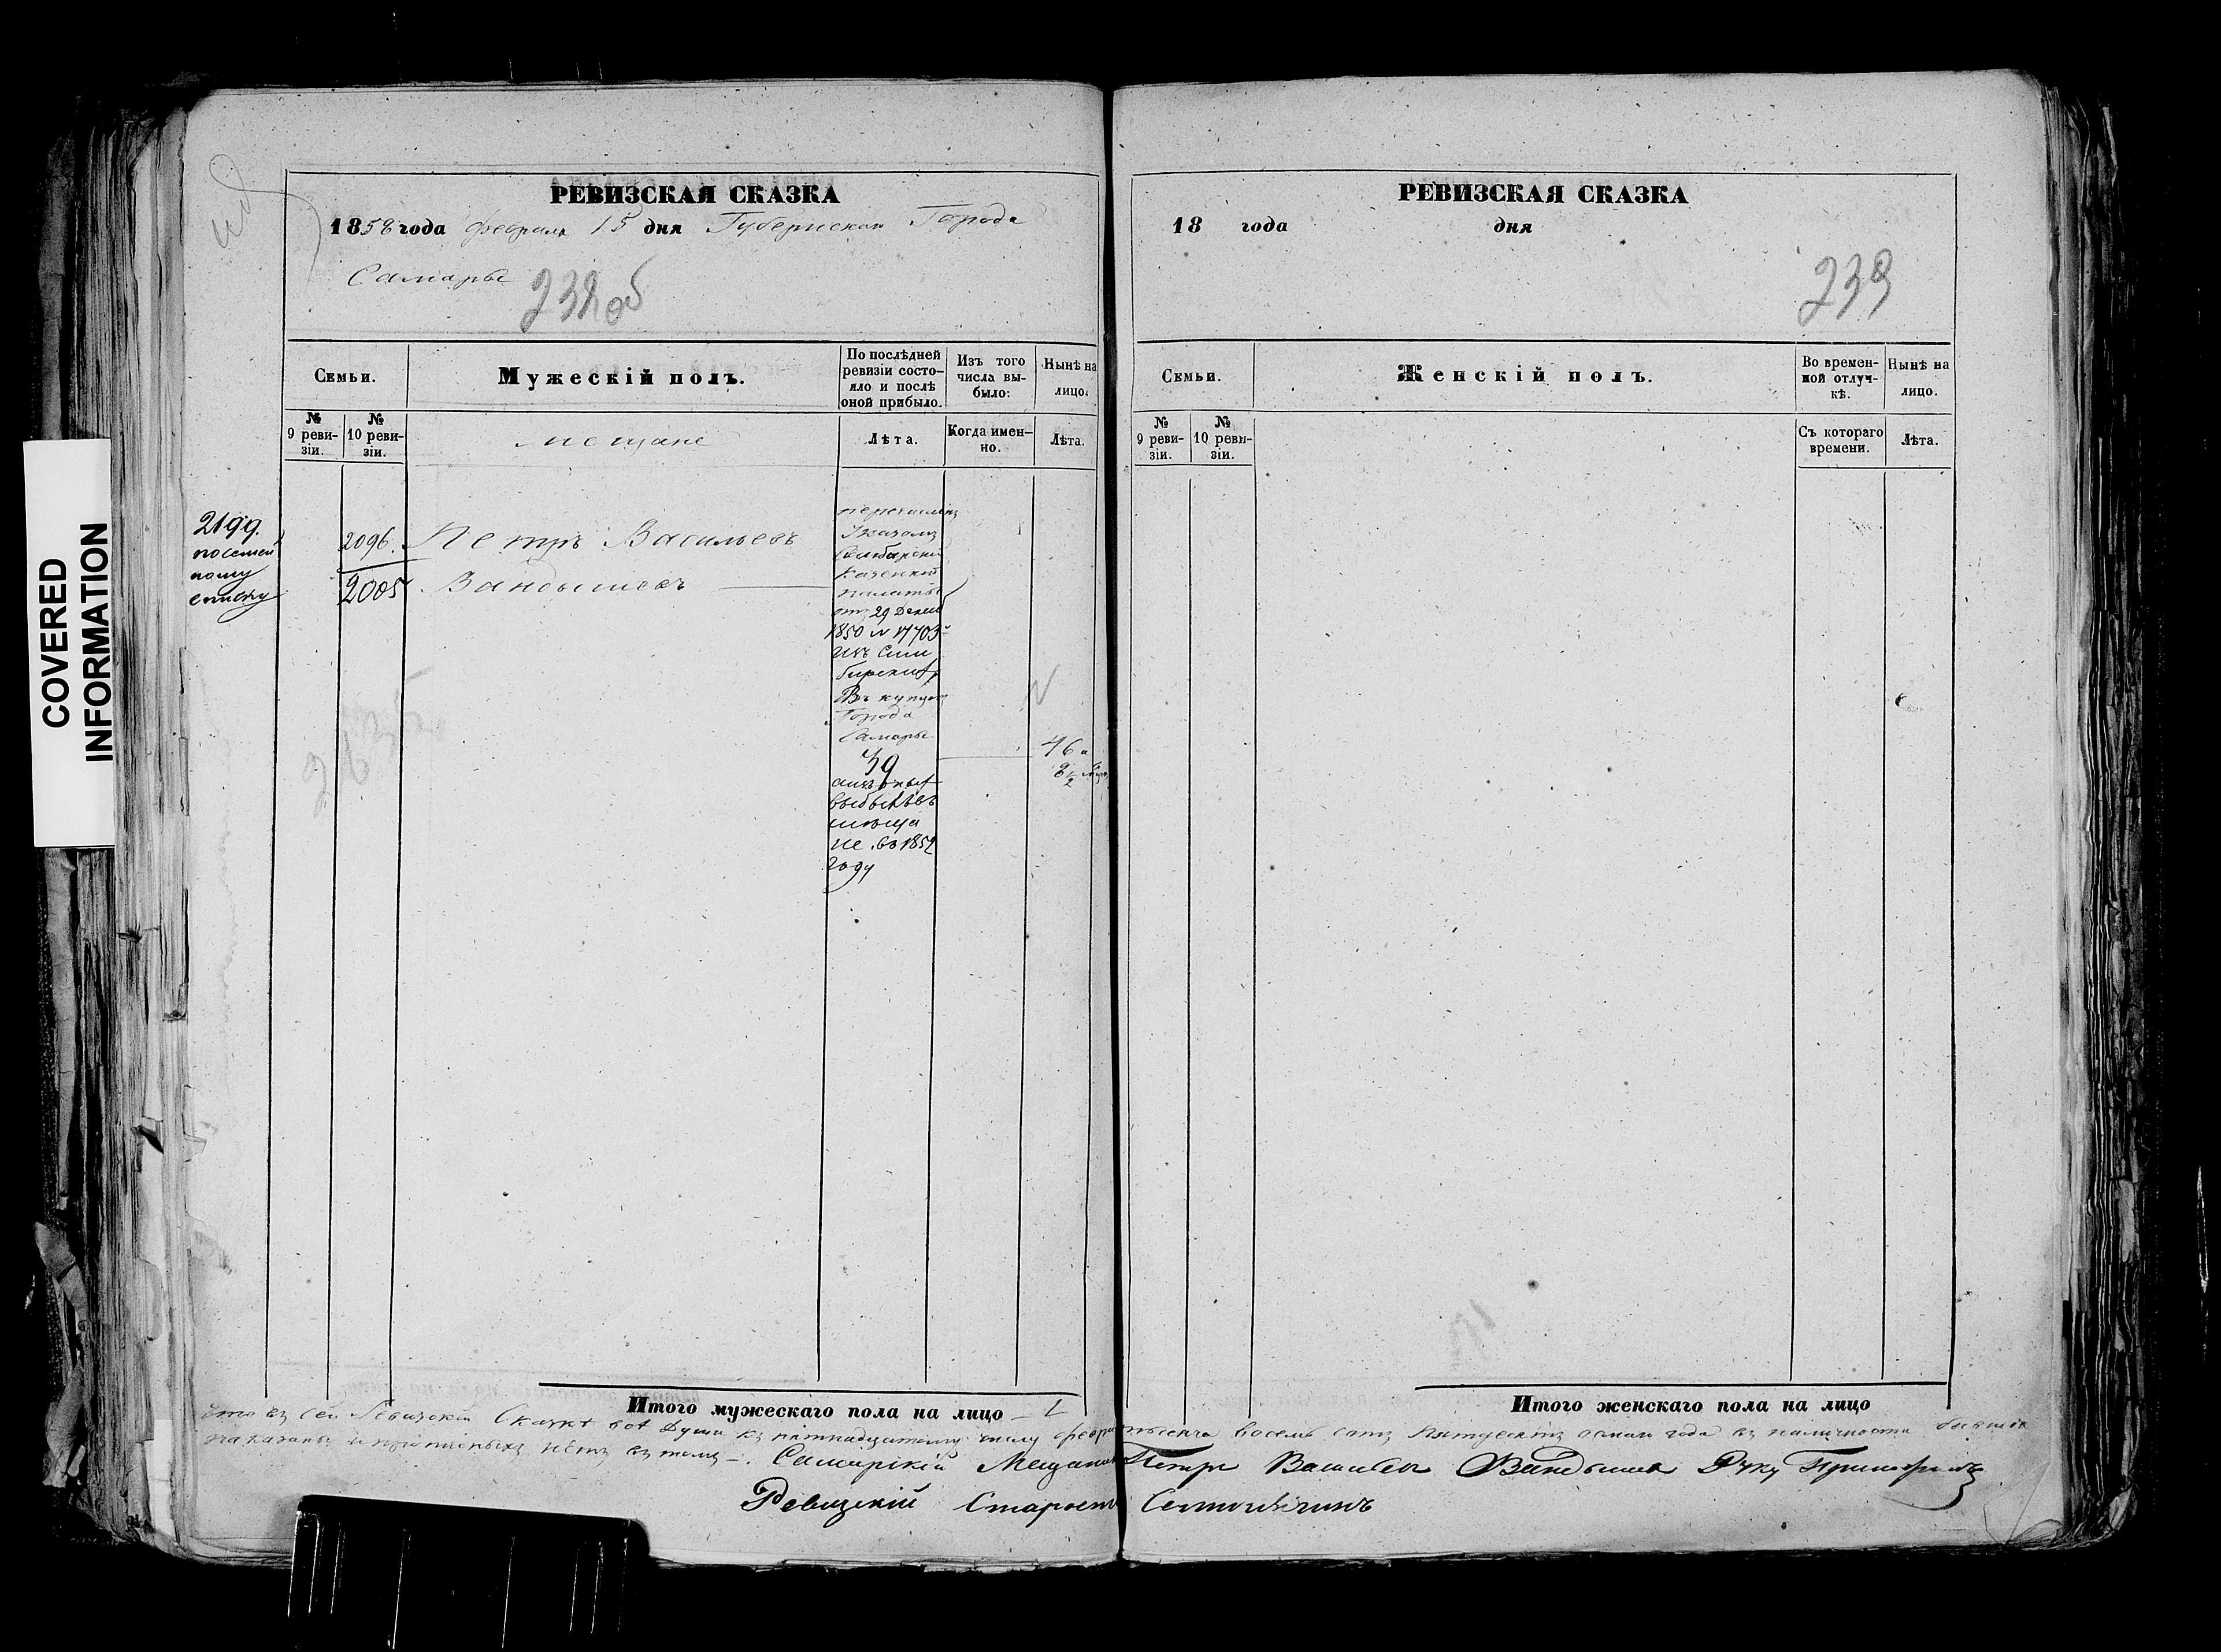 COVERED
INFORMATION
РЕВИЗСКАЯ СКАЗКА
1858 года февраля 15 дня Губернскаго Города
Самары
238 об
Семьи.
Мужескій полъ.
По послѣдней ревизіи состояло и послѣ оной прибыло.
Изъ того числа выбыло:
Нынѣ на лицо.
№ 9 ревизіи.
№ 10 ревизіи.
мещане
Лѣта.
Когда именно.
Лѣта.
2199.
посемей
ному
списку
2096.
2005
Петръ Васильевъ
Вандышевъ
перечисленъ
Указомъ
Симбирской
Казенной
палаты
отъ 29 Декаб
1850 № 17703
изъ Сим
бирских
Въ купцы
Города
Самары
39
выбылъ въ
мѣща
не въ 1852
году
46 и
8 1/2
Итого мужескаго пола на лицо 1
РЕВИЗСКАЯ СКАЗКА
18 года дня
239
Семьи.
Женскій полъ.
Во временной отлучкѣ.
Нынѣ на лицо.
№ 9 ревизіи.
№ 10 ревизіи.
Съ котораго времени.
Лѣта.
Итого женскаго пола на лицо
что въ сей Ревизской Сказкѣ всѣ Души къ пятнадцатому числу февраля тысяча восемь сотъ пятдесятъ осмаго года въ наличности бывшія
показаны и прописныхъ нѣтъ въ томъ Самарскій Мещанинъ Петръ Васильевъ Вандышевъ Руку Приложилъ
Ревизскій Староста